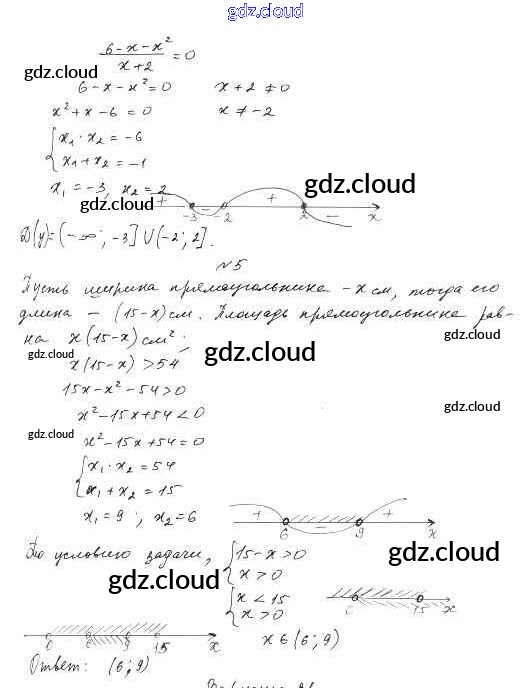 gdz.cloud
(6-x-x²)/(x+2) = 0
gdz.cloud
6-x-x²=0   x+2 ≠ 0
x²+x-6 = 0   x ≠ -2
{ x₁ · x₂ = -6
x₁+x₂ = -1
gdz.cloud
x₁ = -3, x₂ = 2
+ - + -
gdz.cloud
-3 -2 2 x
D(y) = (-∞; -3] ∪ (-2; 2].
№5
Пусть ширина прямоугольника - x см, тогда его
длина - (15-x) см. Площадь прямоугольника рав-
на x(15-x) см²;
gdz.cloud
gdz.cloud
x(15-x) > 54
15x-x²-54>0
x²-15x+54<0
gdz.cloud
gdz.cloud
x²-15x+54=0
{ x₁ · x₂ = 54
x₁ + x₂ = 15
x₁ = 9; x₂ = 6
+ - +
6 9 x
По условию задачи, { 15-x>0
x>0
gdz.cloud
gdz.cloud
{ x<15
x>0
0 15 x
0 6 9 15 x
x ∈ (6; 9)
Ответ: (6; 9)